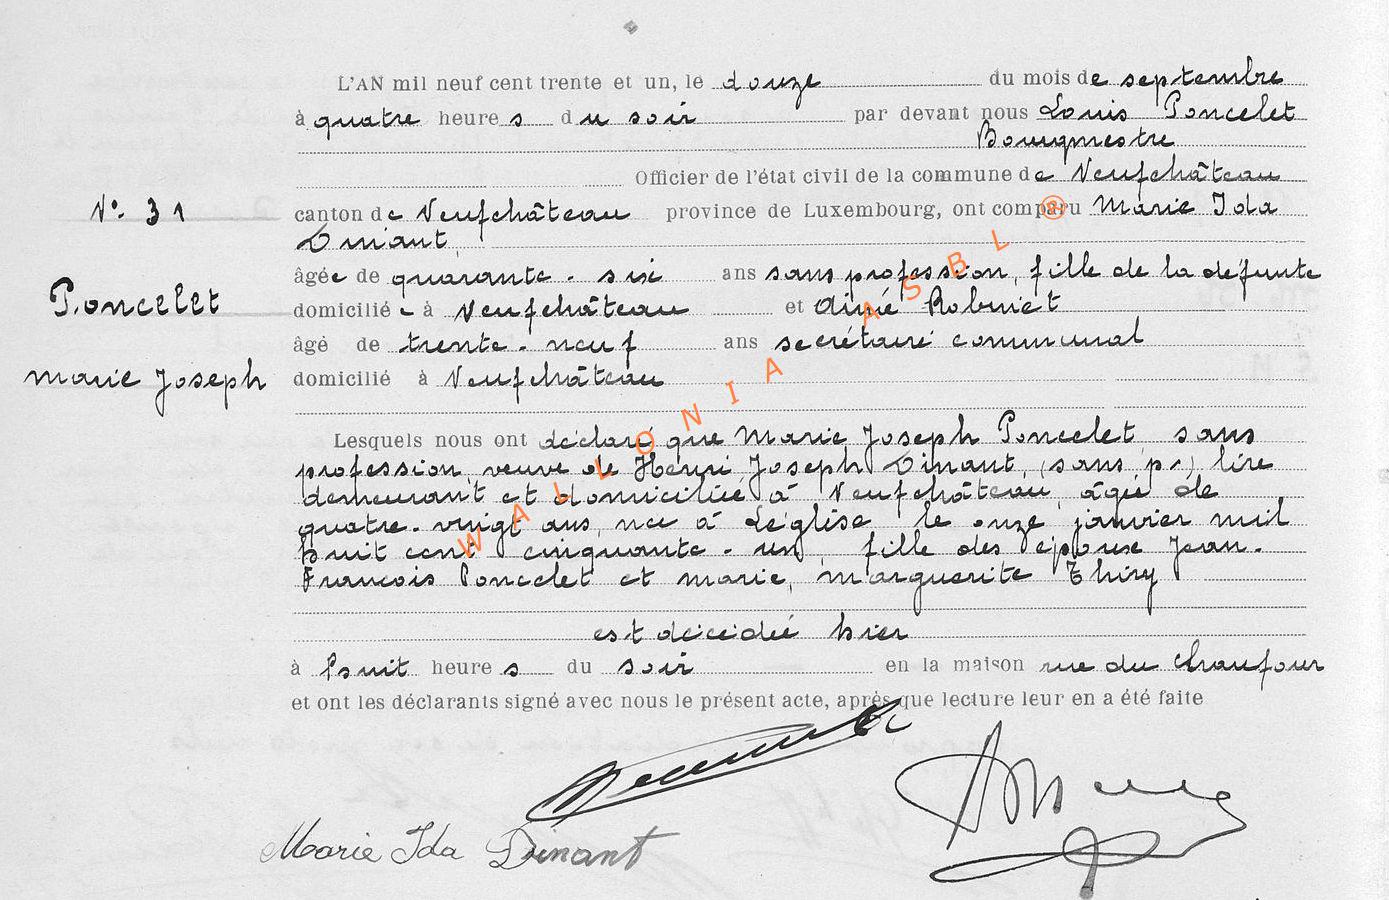 L'AN mil neuf cent trente et un, le douze du mois de septembre
à quatre heures du soir par devant nous Louis Poncelet
Bourgmestre
Officier de l'état civil de la commune de Neufchâteau
N° 31
canton de Neufchâteau province de Luxembourg, ont comparu Marie Ida
Dinant
âgée de quarante-six ans sans profession, fille de la défunte
Poncelet
domiciliée à Neufchâteau et Aimé Robinet
âgé de trente-neuf ans secrétaire communal
Marie Joseph
domicilié à Neufchâteau
Lesquels nous ont déclaré que Marie Joseph Poncelet sans
profession, veuve de Henri Joseph Dinant, (sans pr) lire
demeurant et domiciliée à Neufchâteau, âgée de
quatre-vingt ans, née à Léglise le onze janvier mil
huit cent cinquante-un, fille des époux Jean-
François Poncelet et Marie, Marguerite Thiry
est décédée hier
à huit heures du soir en la maison rue du Chaufour
et ont les déclarants signé avec nous le présent acte, après que lecture leur en a été faite
Marie Ida Dinant
WALLONIA ASBL ®